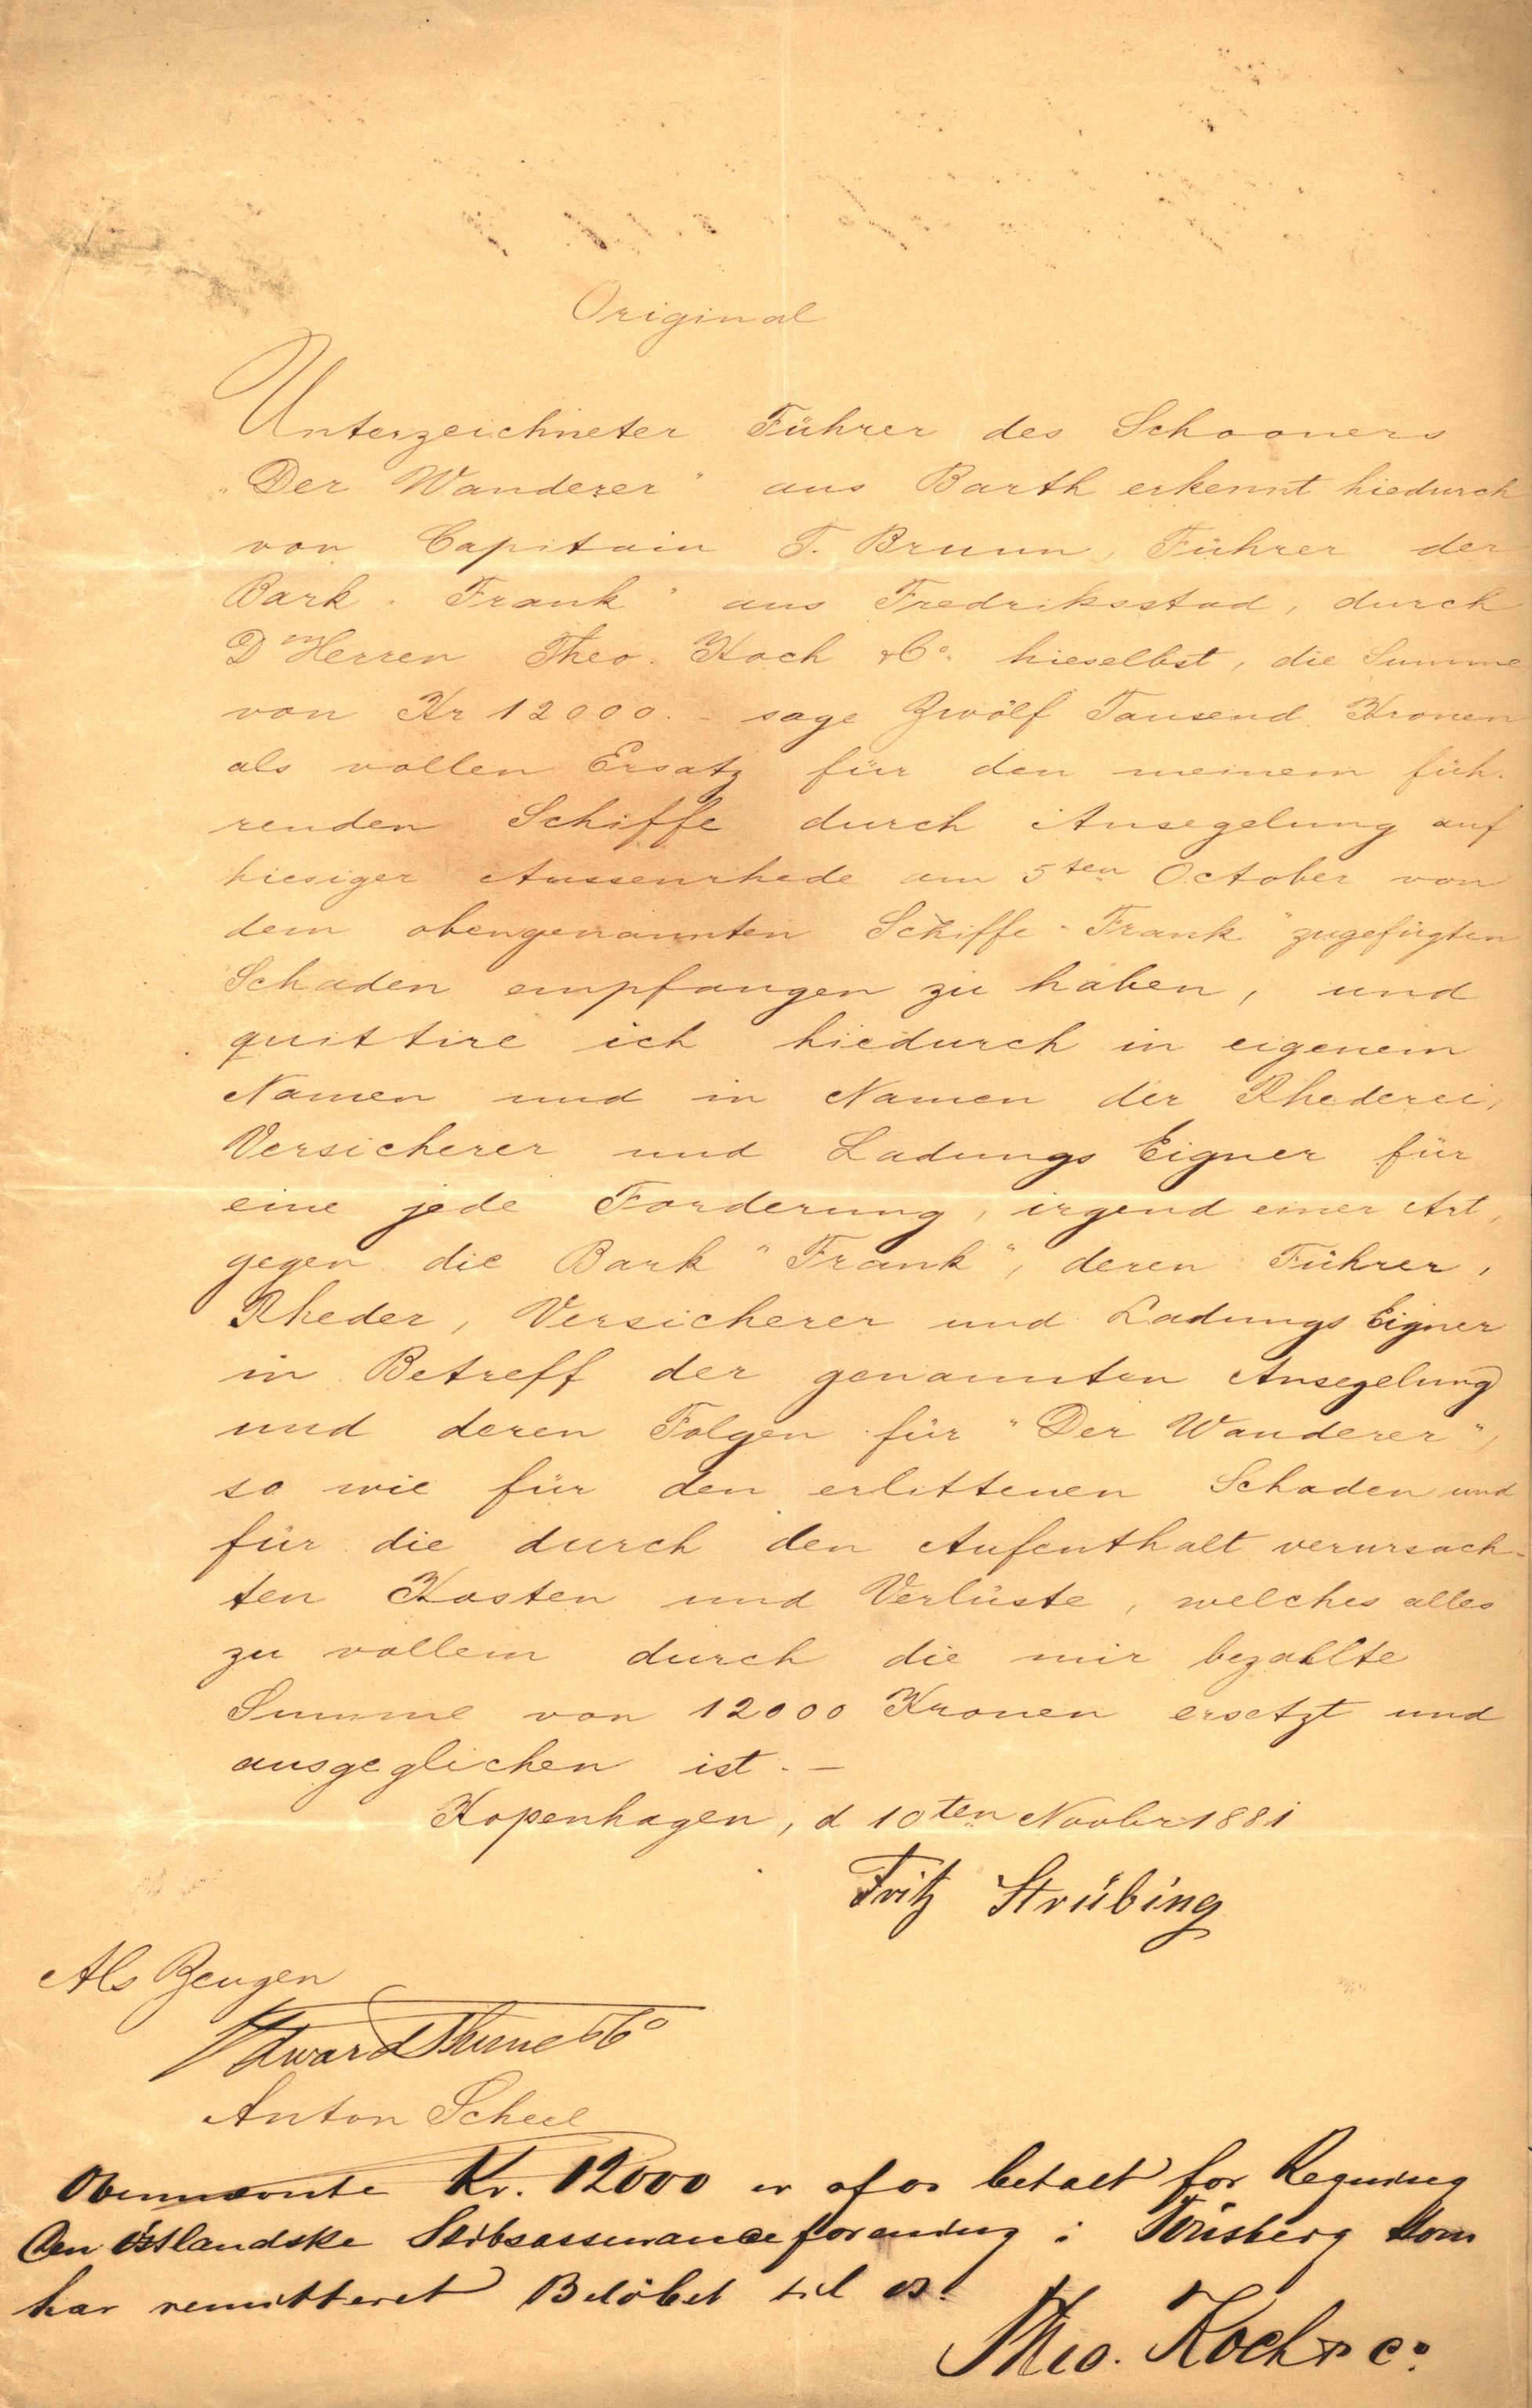 Original
Unterzeichneter Führer des Schooners
"Der Wanderer" aus Barth erkennt hiedurch
von Capitain T. Bruun, Führer der
Bark "Frank" aus Fredriksstad, durch
D^m Herren Theo. Koch & Co. hieselbst, die Summe
von Kr 12000.- sage Zwölf Tausend Kronen
als vollen Ersatz für den meinem füh-
renden Schiffe durch Ansegelung auf
hiesiger Aussenrhede am 5ten October von
dem obengenannten Schiffe "Frank" zugefügten
Schaden empfangen zu haben, und
quittire ich hiedurch in eigenem
Namen und in Namen der Rhederei,
Versicherer und Ladungs Eigner für
eine jede Forderung, irgend einer Art,
gegen die Bark "Frank", deren Führer,
Rheder, Versicherer und Ladungs Eigner
in Betreff der genannten Ansegelung
und deren Folgen für "Der Wanderer",
so wie für den erlittenen Schaden und
für die durch den Aufenthalt verursach-
ten Kosten und Verlüste, welches alles
zu vollem durch die mir bezahlte
Summe von 12000 Kronen ersetzt und
ausgeglichen ist.-
Kopenhagen, d 10ten Novbr 1881
Fritz Strübing
Als Zeugen
Anton Scheel
Ovennævnte Kr. 12000 er af os betalt for Regning
den östlandske Skibsassuranceforening i Tönsberg som
har remitteret Belöbet til os.
Theo. Koch & Co.